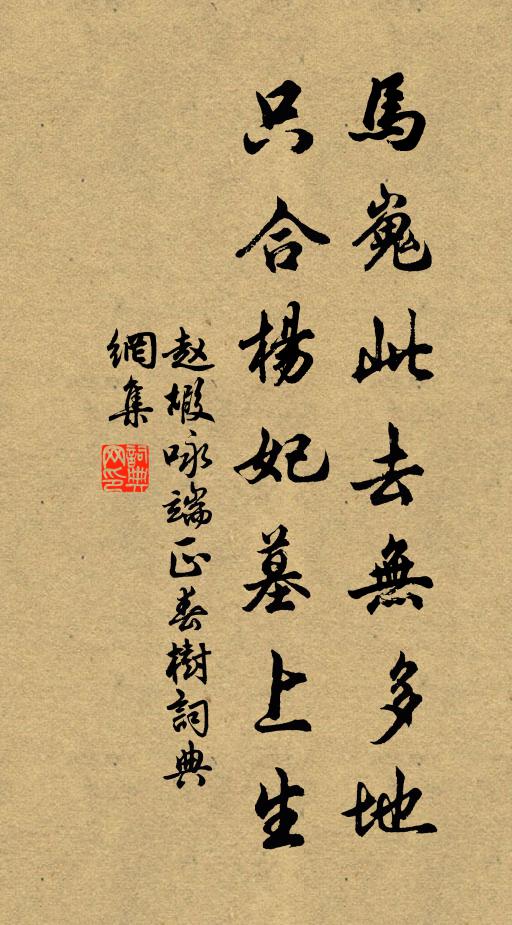 馬嵬此去無多地
只合楊妃墓上生
赵嘏咏端正春樹詞典
網集
詞典網印